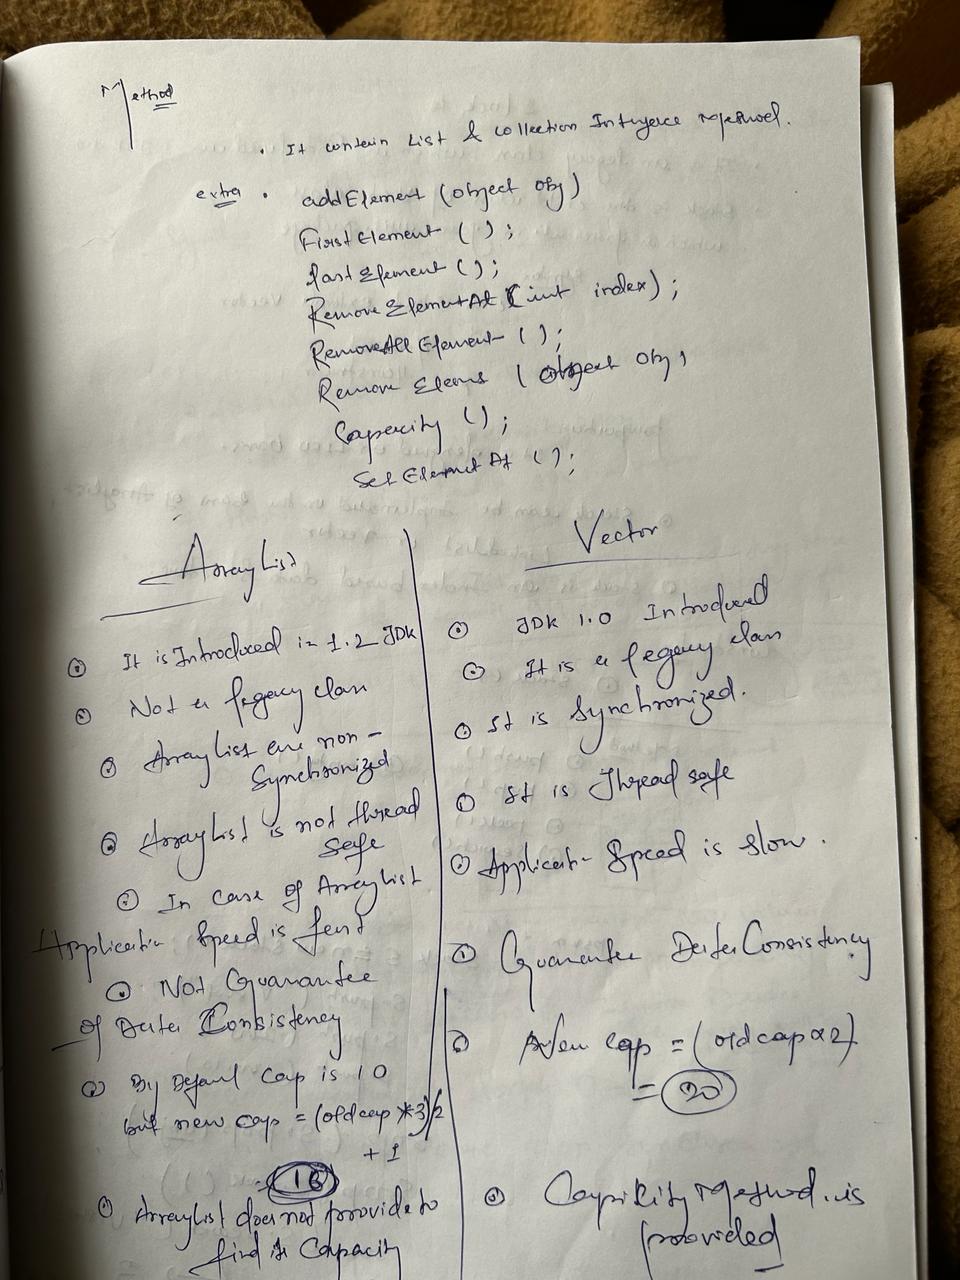 Method
. It contain List & collection Interface Method.
extra . addElement (object obj)
FirstElement ( ) ;
lastElement ( ) ;
Remove ElementAt (int index) ;
RemoveAll Element ( ) ;
Remove Elems ( object obj )
Capacity ( ) ;
Set Element At ( ) ;
ArrayList
It is Introduced in 1.2 JDK
Not a legacy class
ArrayList are non -
Synchronized
ArrayList is not thread
safe
In case of ArrayList
Application Speed is fast
Not Guarantee
of Data Consistency
By Default cap is 10
but new cap = (old cap * 3)/2
+ 1
= 16
ArrayList does not provide to
find its Capacity
Vector
JDK 1.0 Introduced
It is a legacy class
It is Synchronized.
It is Thread safe
Applicati- Speed is slow.
Guarantee Data Consistency
New cap = (old cap * 2)
= 20
Method is
provided